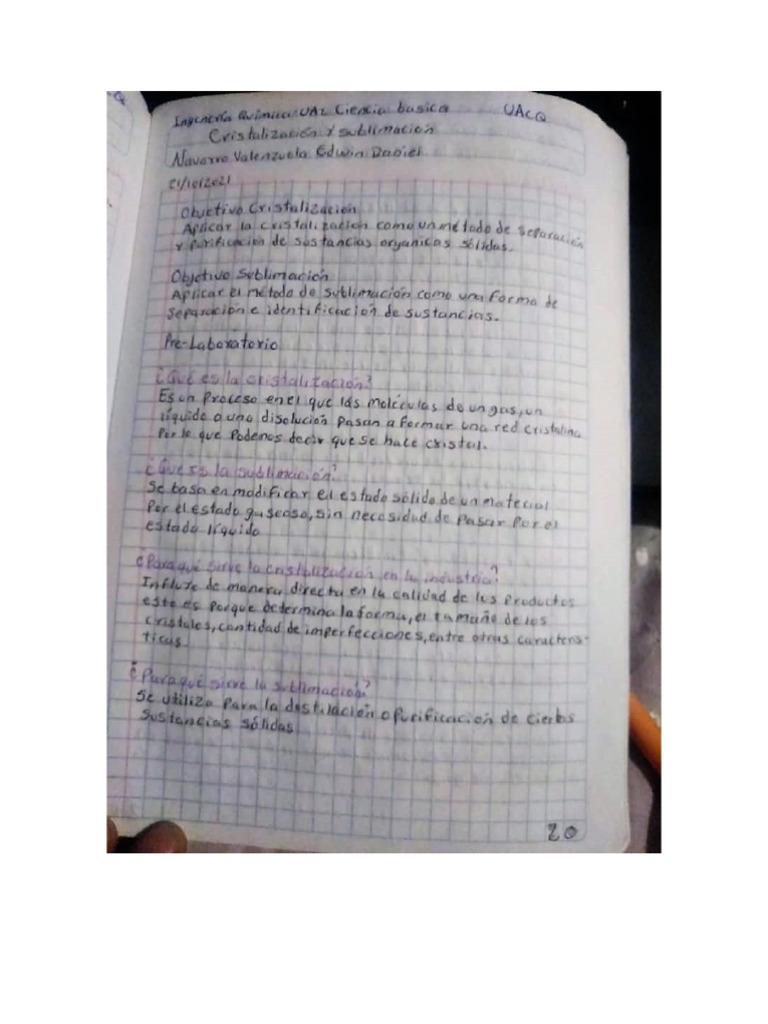 Ingeniería Química UAZ Ciencia basica UACQ
Cristalización y sublimación
Navarro Valenzuela Edwin Daniel
21/10/2021
Objetivo Cristalización
Aplicar la cristalización como un método de separación
y purificación de sustancias organicas sólidas.
Objetivo Sublimación
Aplicar el método de sublimación como una forma de
separación e identificación de sustancias.
Pre-Laboratorio
¿Qué es la cristalización?
Es un proceso en el que las moléculas de un gas, un
líquido o una disolución pasan a formar una red cristalina
Por lo que Podemos decir que se hace cristal.
¿Qué es la sublimación?
Se basa en modificar el estado sólido de un material
Por el estado gaseoso, sin necesidad de pasar por el
estado líquido
¿Para qué sirve la cristalización en la industria?
Influye de manera directa en la calidad de los Productos
esto es porque determina la forma, el tamaño de los
cristales, cantidad de imperfecciones, entre otras caracterís-
ticas.
¿Para qué sirve la sublimación?
Se utiliza Para la destilación o purificación de ciertas
sustancias sólidas
20